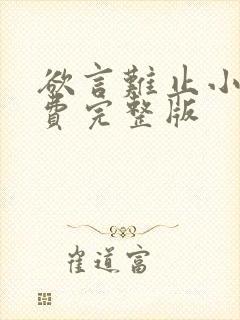 欲言難止小
費完整版
崔道富